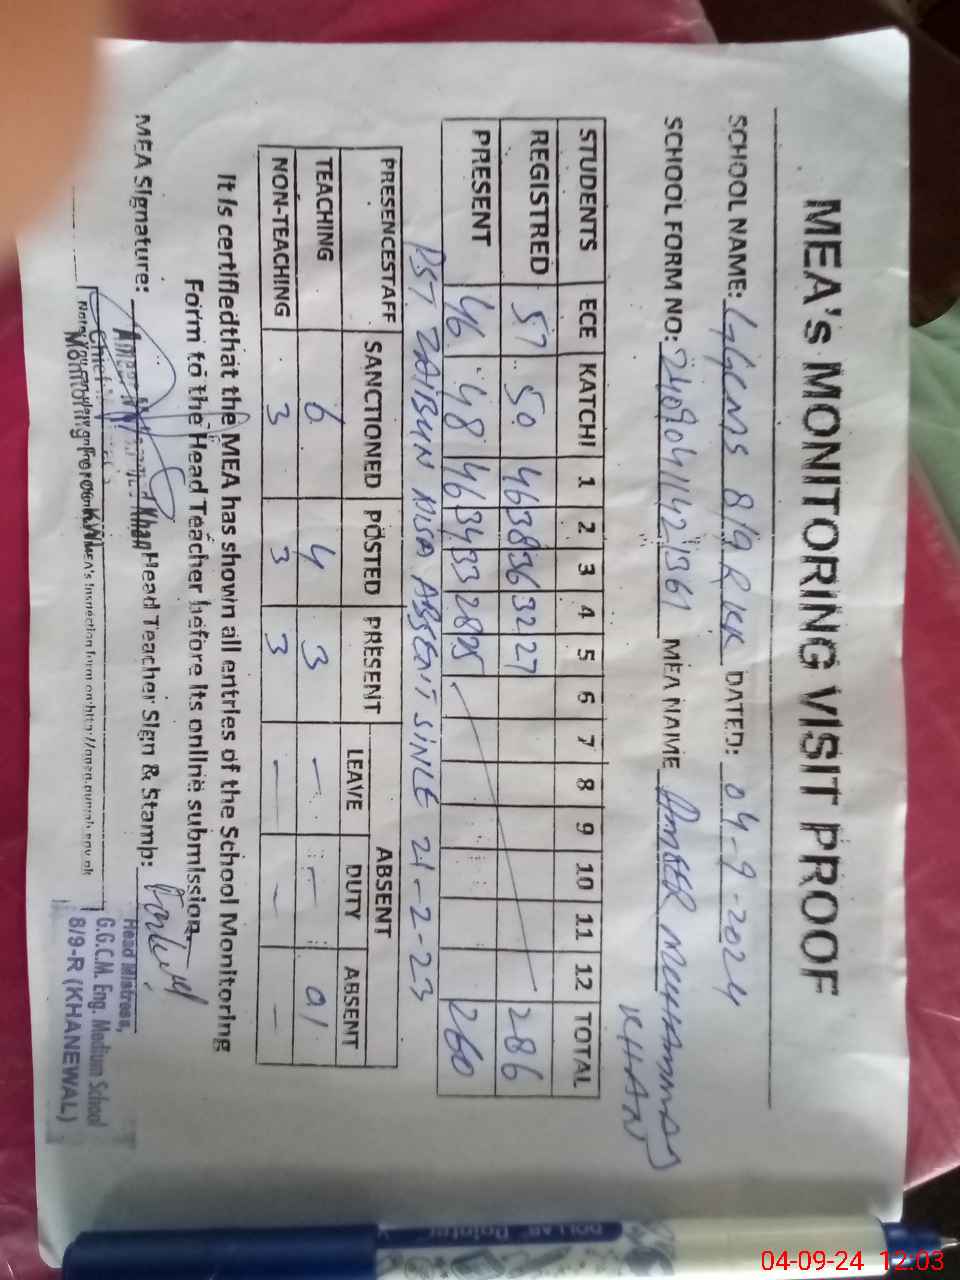 MEA's MONITORING VISIT PROOF
SCHOOL NAME: GGCMS 8/9R KK DATED: 04-9-2024
SCHOOL FORM NO: MEA NAME AMEER MUHAMMAD
KHAN
STUDENTS ECE KATCHI 1 2 3 4 5 6 7 8 9 10 11 12 TOTAL
REGISTRED 57 50 46 38 36 32 27 286
PRESENT 46 48 46 34 33 28 25 260
PST ZAIBUN NISA ABSENT SINCE 21-2-23
PRESENCESTAFF SANCTIONED POSTED PRESENT ABSENT
LEAVE DUTY ABSENT
TEACHING 6 4 3 - - 01
NON-TEACHING 3 3 3 - - -
It is certifiedthat the MEA has shown all entries of the School Monitoring
Form to the Head Teacher before its online submission.
MEA Signature: Head Teacher Sign & Stamp:
Khan
Head Mistress,
G.G.C.M. Eng. Medium School
8/9-R (KHANEWAL)
DOLLAR Pointer
04-09-24 12:03